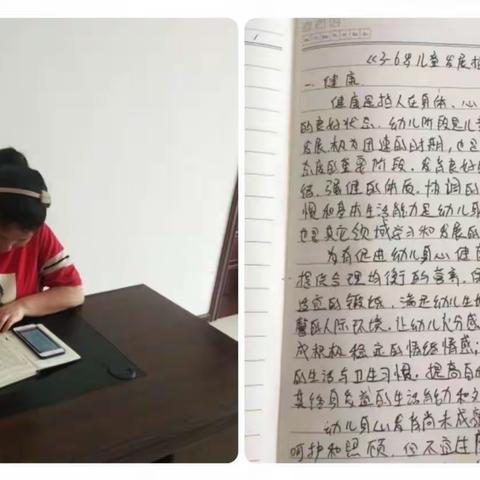 《3-6岁儿童发展指
一、健康
健康是指人在身体、心
的良好状态。幼儿阶段是儿
发展极为迅速的时期,也是
态度的重要阶段。发育良好
绪、强健的体质、协调的
惯和基本生活能力是幼儿
也是其它领域学习和发展的
为有促进幼儿身心健
提供合理均衡的营养,保
适宜的锻炼,满足幼儿生
馨的人际环境,让幼儿充分感
成积极稳定的情绪情感;
的生活与卫生习惯,提高自
其终身受益的生活能力和
幼儿身心发育尚未成
呵护和照顾,但不宜